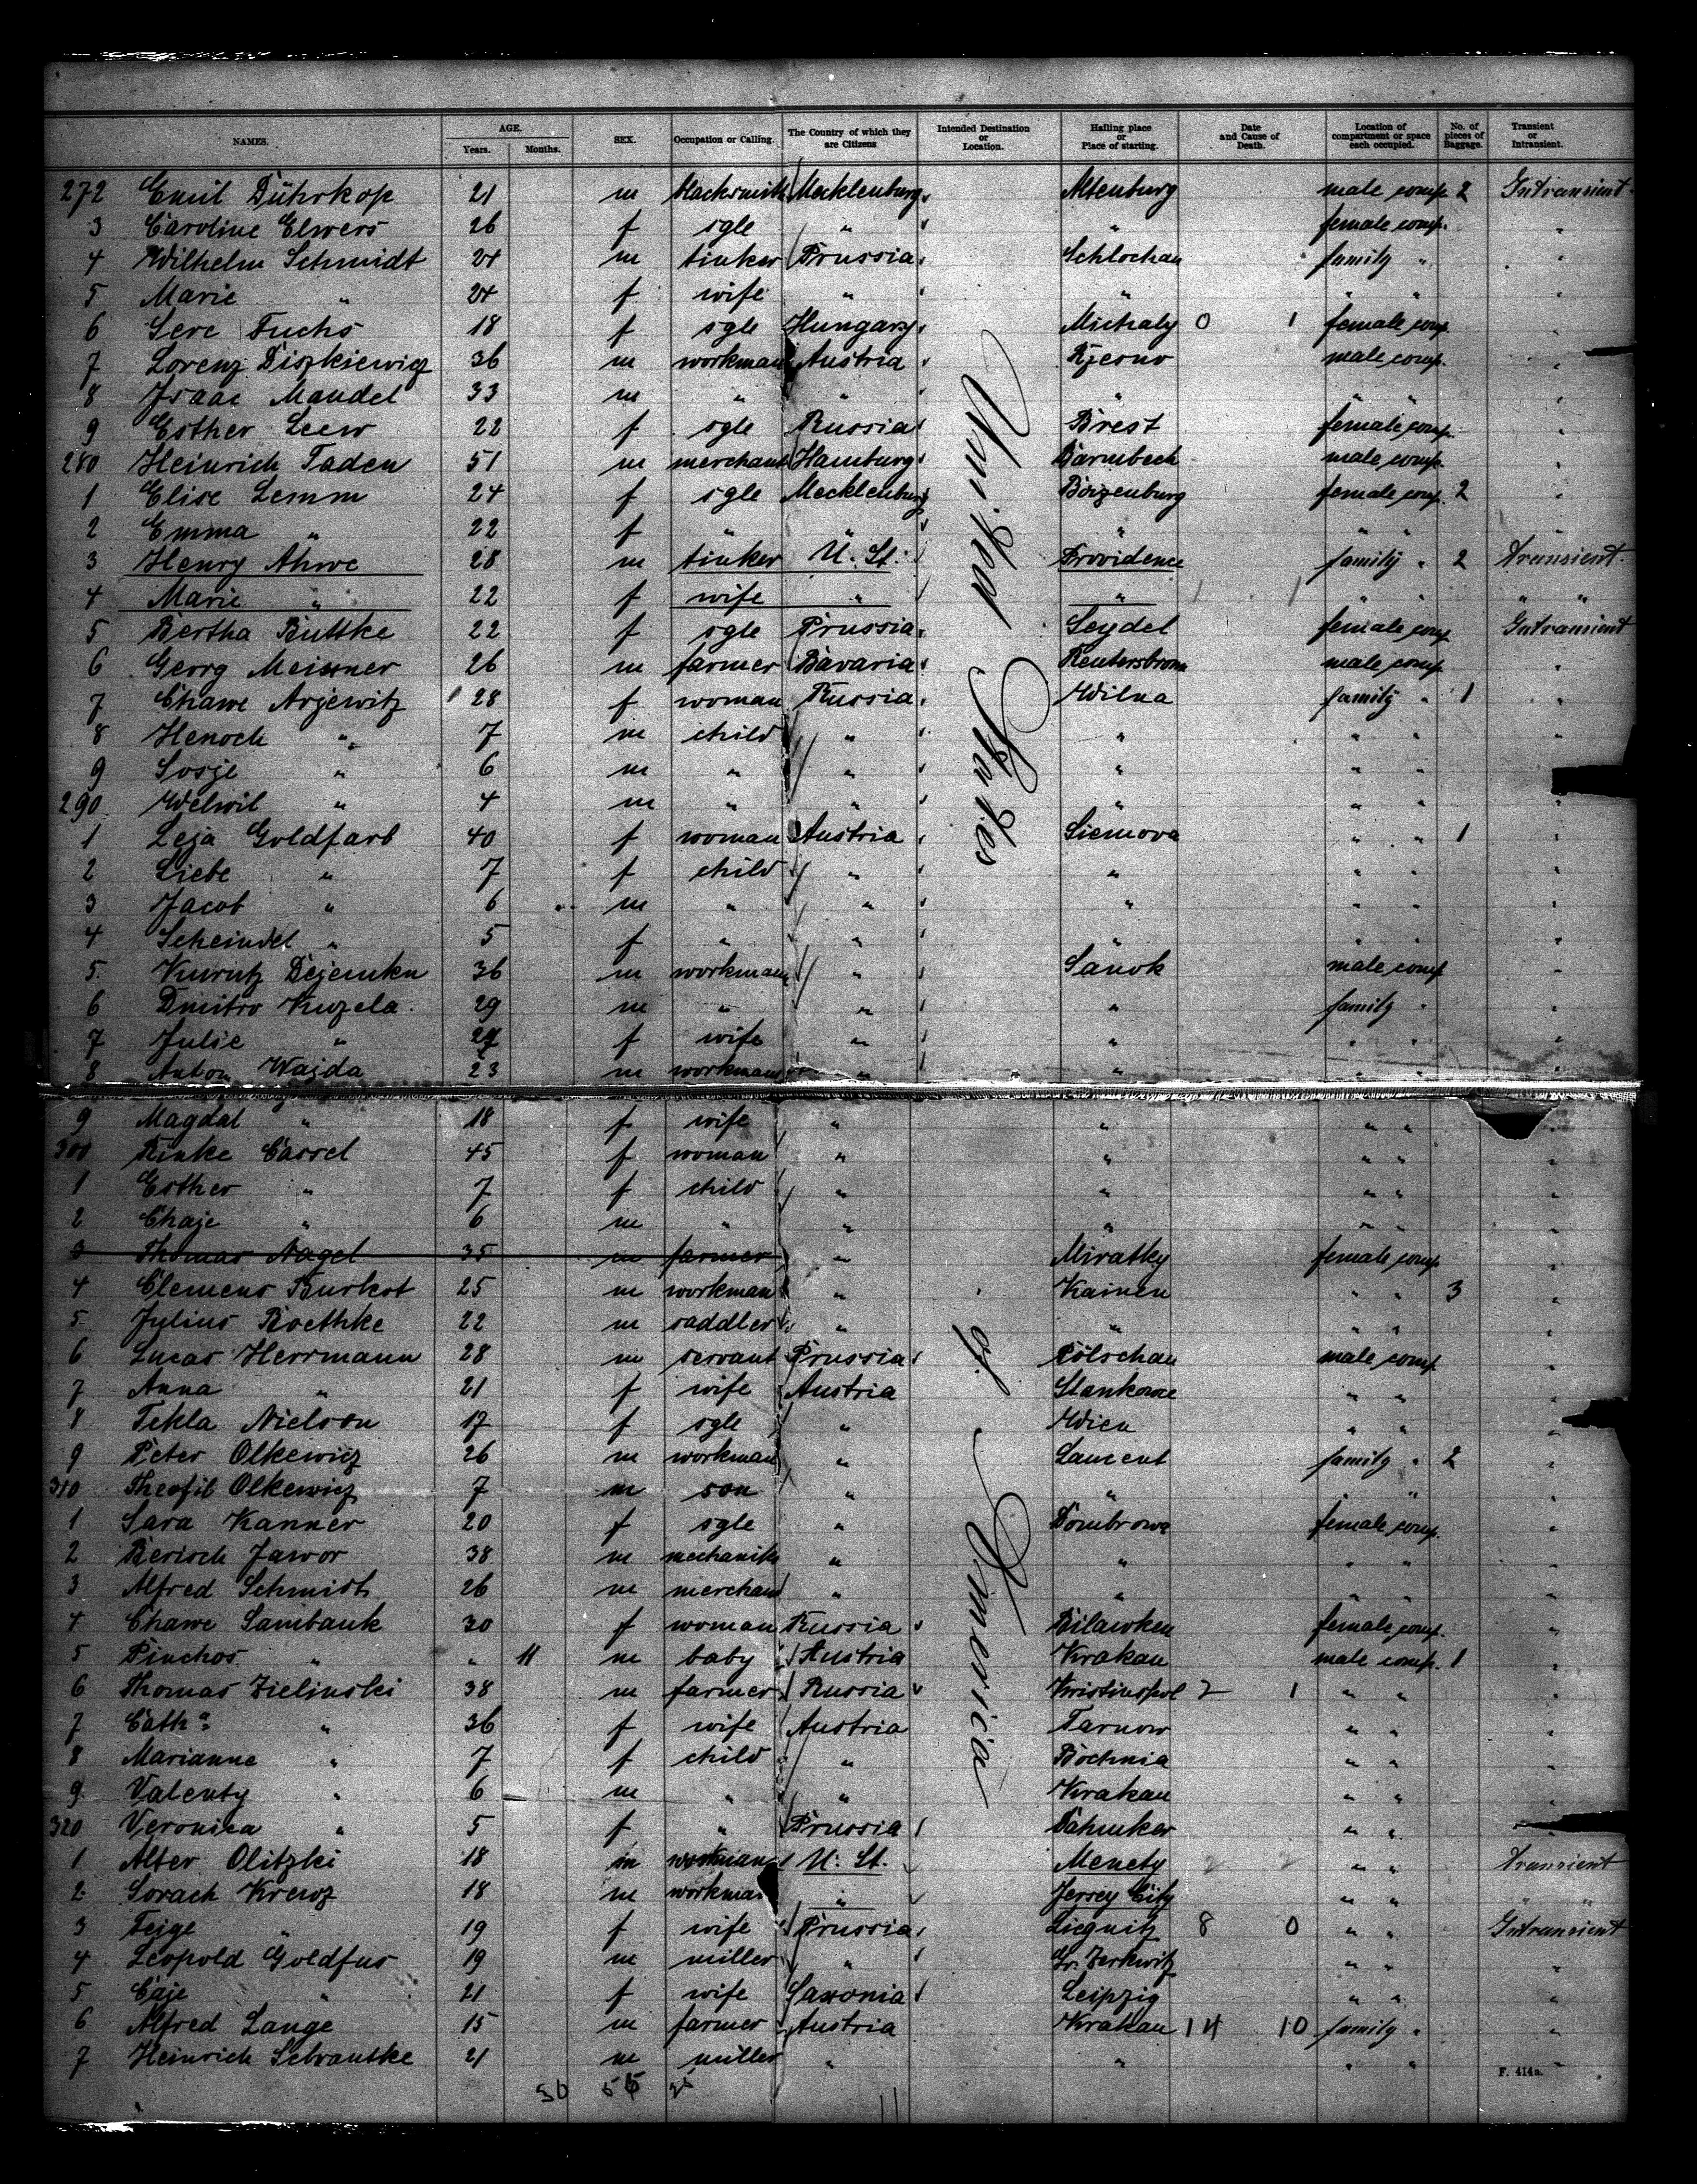 NAMES. AGE. Years. Months. SEX. Occupation or Calling. The Country of which they are Citizens Intended Destination or Location. Hailing place or Place of starting. Date and Cause of Death. Location of compartment or space each occupied. No. of pieces of Baggage. Transient or Intransient.
272 Emil Dührkop 21 m blacksmith Mecklenburg Altenburg male comp 2 Intransient
3 Caroline Elwers 26 f sgle " " female comp. "
4 Wilhelm Schmidt 24 m tinker Prussia Schlochau family " "
5 Marie " 24 f wife " " " " "
6 Sere Fuchs 18 f sgle Hungary Michaly 0 1 female comp "
7 Lorenz Diszkiewicz 36 m workman Austria male comp. "
8 Isaac Mandel 33 m " " " " " "
9 Esther Leew 22 f sgle Russia Brest female comp. "
280 Heinrich Taden 51 m merchant Hamburg Barmbeck male comp. "
1 Elise Lemm 24 f sgle Mecklenburg Boizenburg female comp. 2 "
2 Emma " 22 f " " " " " "
3 Henry Ahwe 28 m tinker U. St. Providence family " 2 Transient
4 Marie " 22 f wife " " 1 1 " " " "
5 Bertha Buttke 22 f sgle Prussia Seydel female comp Intransient
6 Georg Meixner 26 m farmer Bavaria Reutersbronn male comp "
7 Chawe Arjewitz 28 f woman Russia Wilna family " 1 "
8 Henoch " 7 m child " " " " "
9 Sosje " 6 m " " " " " "
290 Welwil " 4 m " " " " " "
1 Leja Goldfarb 40 f woman Austria Siemova " " 1 "
2 Liebe " 7 f child " " " " "
3 Jacob " 6 m " " " " " "
4 Scheindel " 5 f " " " " " "
5 Dejemku 36 m workman " Sanok male comp "
6 Dmitro Kuzela 29 m " " " family " "
7 Julie " 24 f wife " " " " "
8 Anton Wajda 23 m workman " " " " "
9 Magdal " 18 f wife " " " " "
300 Rinke Cassel 45 f woman " " " " "
1 Esther " 7 f child " " " " "
2 Chaje " 6 m " " " " " "
3 Thomas Nagel 35 m farmer " Miratky female comp "
4 Clemens Burkot 25 m workman " Kainen " " 3 "
5 Julius Boethke 22 m saddler " " " " "
6 Lucas Herrmann 28 m servant Prussia Pölschau male comp "
7 Anna " 21 f wife Austria Stankowce " " "
8 Tekla Nielson 17 f sgle " Wien " " "
9 Peter Olkewicz 26 m workman " Lament family " 2 "
310 Theofil Olkewicz 7 m son " " " " "
1 Sara Kanner 20 f sgle " Dombrowa female comp. "
2 Berisch Jawor 38 m mechanik " " " " "
3 Alfred Schmidt 26 m merchant " " " " "
4 Chawe Sambank 30 f woman Russia Bilawken female comp. "
5 Pinchos " " 11 m baby Austria Krakau male comp. 1 "
6 Thomas Zielinski 38 m farmer Russia Kristinopol 2 1 " " "
7 Cath⁠a " 36 f wife Austria Tarnow " " "
8 Marianne " 7 f child " Bochnia " " "
9 Valenty " 6 m " " Krakau " " "
320 Veronica " 5 f " Prussia Dahmker " " "
1 Alter Olitzki 18 m workman U. St. Menety 2 2 " " Transient
2 Sorach Krewz 18 m workman " Jersey City " " " "
3 Feige " 19 f wife Prussia Liegnitz 8 0 " " Intransient
4 Leopold Goldfus 19 m miller " Gr. Zerkwitz " " "
5 Caje " 21 f wife Saxonia Leipzig " " "
6 Alfred Lange 15 m farmer Austria Krakau 14 10 family " "
7 Heinrich Schvantke 21 m miller " " " " "
United States of America
F. 414a.